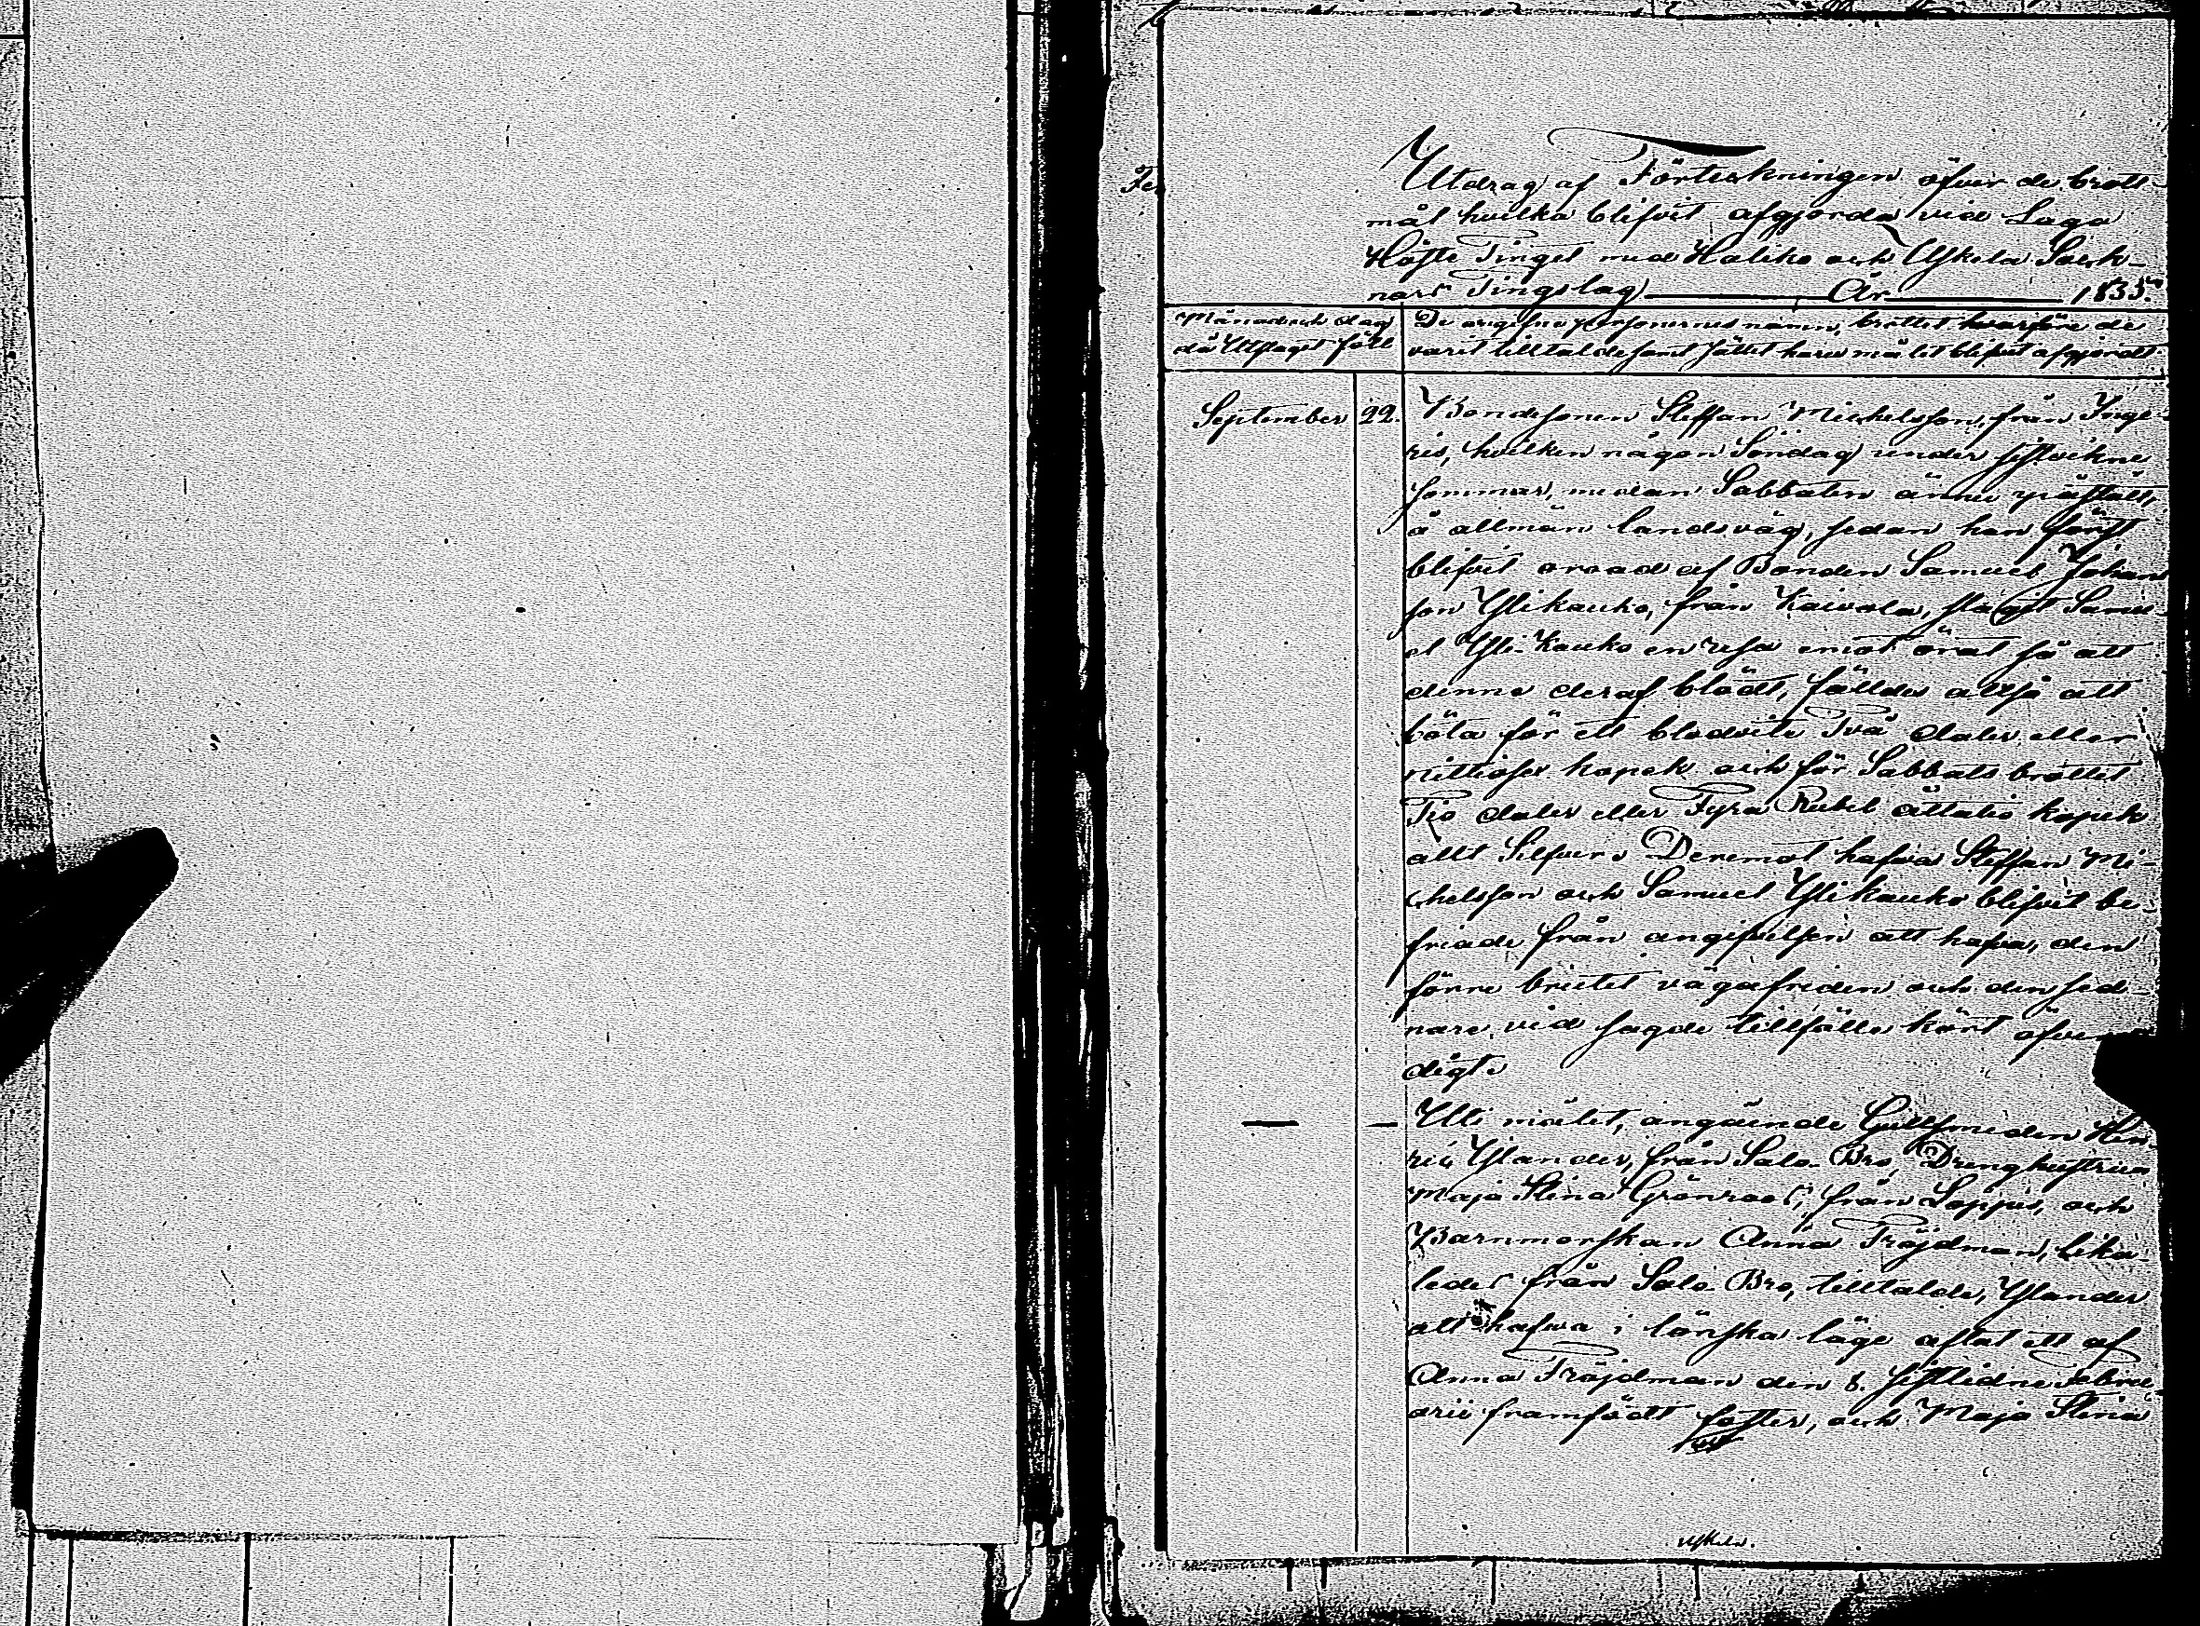 Utdrag af Förteckningen öfver de brott-
mål hvilka blifvit afgjorda vid Laga
Höste Tinget med Haliko och Uskela Sock-
nars Tingslag År 1835.
Månad och dag
då Utslaget föll
De angifne personernes namn, brottet hvarföre de
varit tilltalde samt sättet huru målet blifvit afgjordt.
September 22. Bondesonen Steffan Michelsson, från Inge-
ris, hvilken någon Söndag under sistvekne
sommar, medan Sabbaten ännu påstått,
å allmän landsväg, sedan han först
blifvit oroad af Bonden Samuel Johans
son Ylikauko, från Kaivola, slagit Samu-
el Yli-Kauko en resa emot örat så att
denne deraf blödt, fälldes altså att
böta för ett blodvite Två daler eller
nittiosex kopek och för Sabbats brottet
Tio daler eller Fyra Rubel åttatio kopek
allt Silfver. Deremot hafva Steffan Mi-
chelsson och Samuel Ylikauko blifvit be-
friade från angifvelsen att hafva, den
förre brutit vägafriden och den sed-
nare vid sagde tillfälle kört
digt.
— — Uti målet, angående Gullsmeden Hen-
ric Ylander, från Salo Bro, Drenghustrun
Maja Stina Grönroos, från Loppis, och
Barnmorskan Anna Fröjdman, lika-
ledes från Salo Bro, tilltalde, Ylander
att hafva i lönska läge aflat ett af
Anna Fröjdman den 8. sistlidne Febru-
arii framfödt foster, och Maja Stina
Uskela.